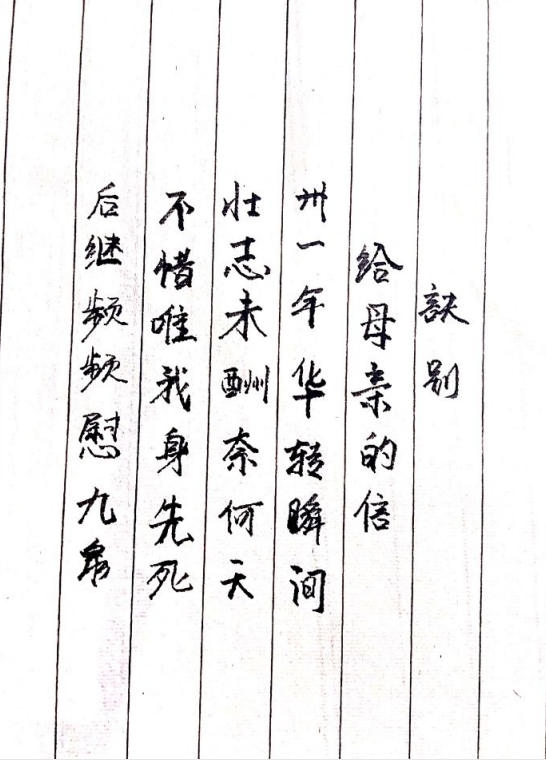 訣别
给母亲的信
卅一年华转瞬间
壮志未酬奈何天
不惜唯我身先死
后继频频慰九泉